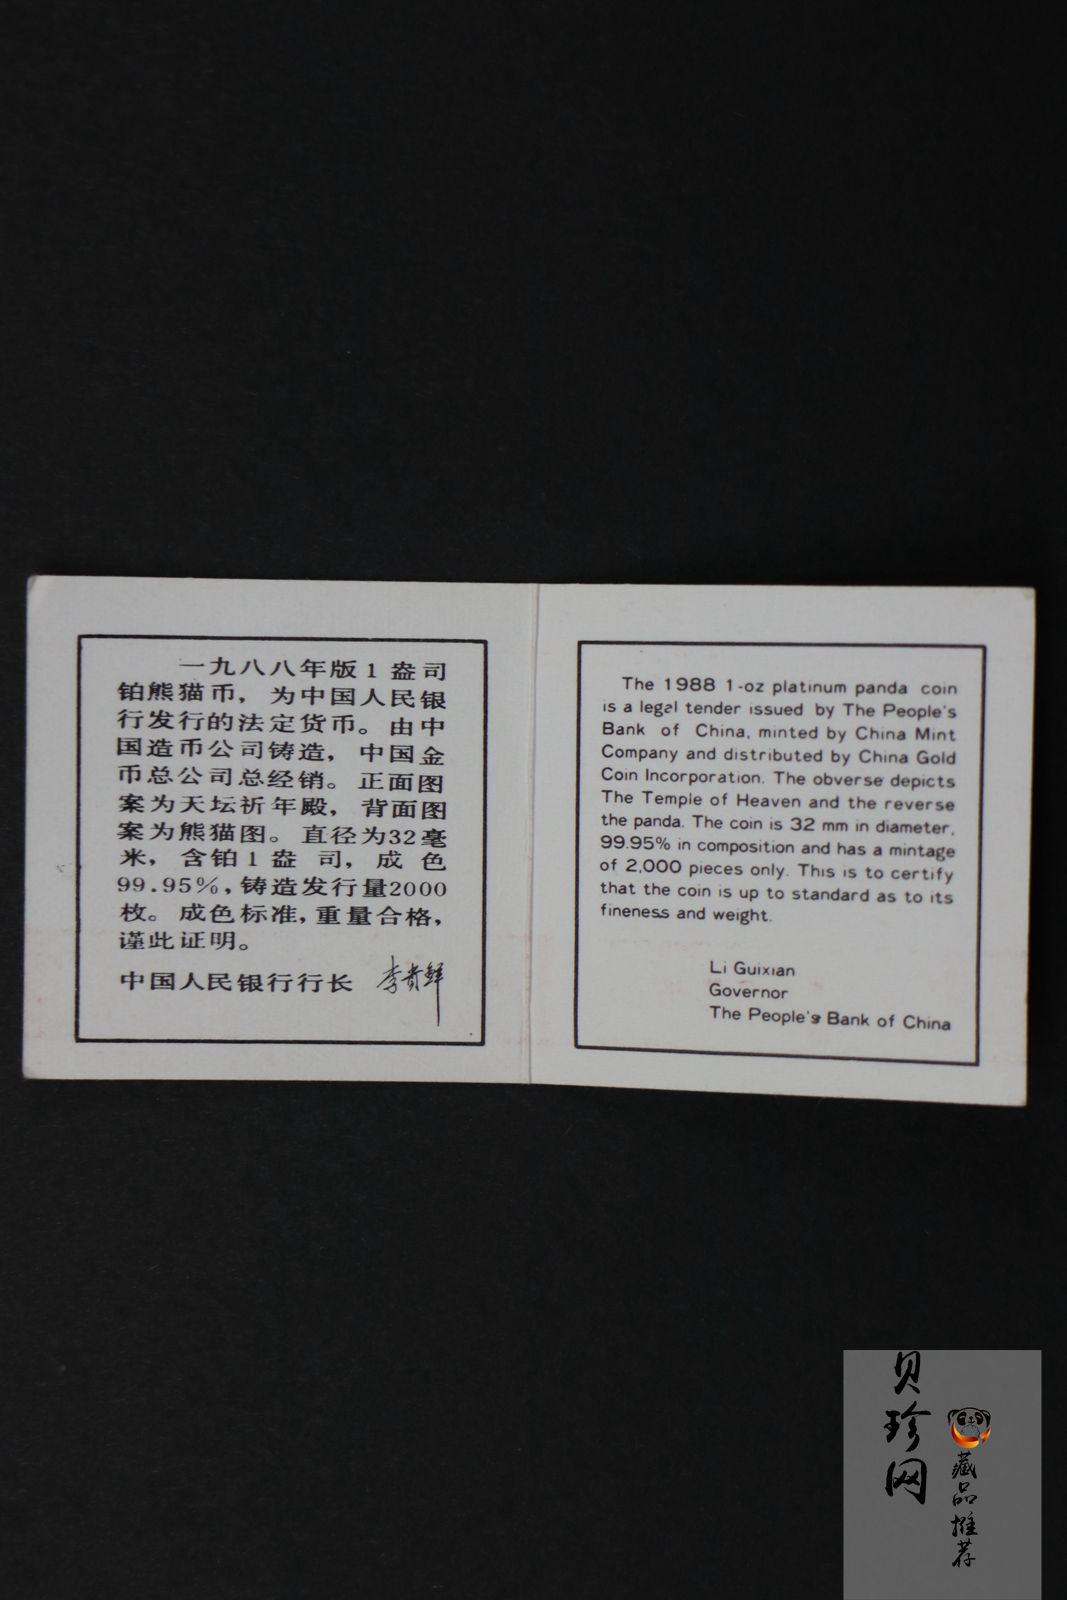 一九八八年版1盎司
铂熊猫币，为中国人民银
行发行的法定货币。由中
国造币公司铸造，中国金
币总公司总经销。正面图
案为天坛祈年殿，背面图
案为熊猫图。直径为32毫
米，含铂1盎司，成色
99.95%，铸造发行量2000
枚。成色标准，重量合格，
谨此证明。
中国人民银行行长 李贵鲜
The 1988 1-oz platinum panda coin
is a legal tender issued by The People's
Bank of China, minted by China Mint
Company and distributed by China Gold
Coin Incorporation. The obverse depicts
The Temple of Heaven and the reverse
the panda. The coin is 32 mm in diameter,
99.95% in composition and has a mintage
of 2,000 pieces only. This is to certify
that the coin is up to standard as to its
fineness and weight.
Li Guixian
Governor
The People's Bank of China
贝珍网
藏品推荐